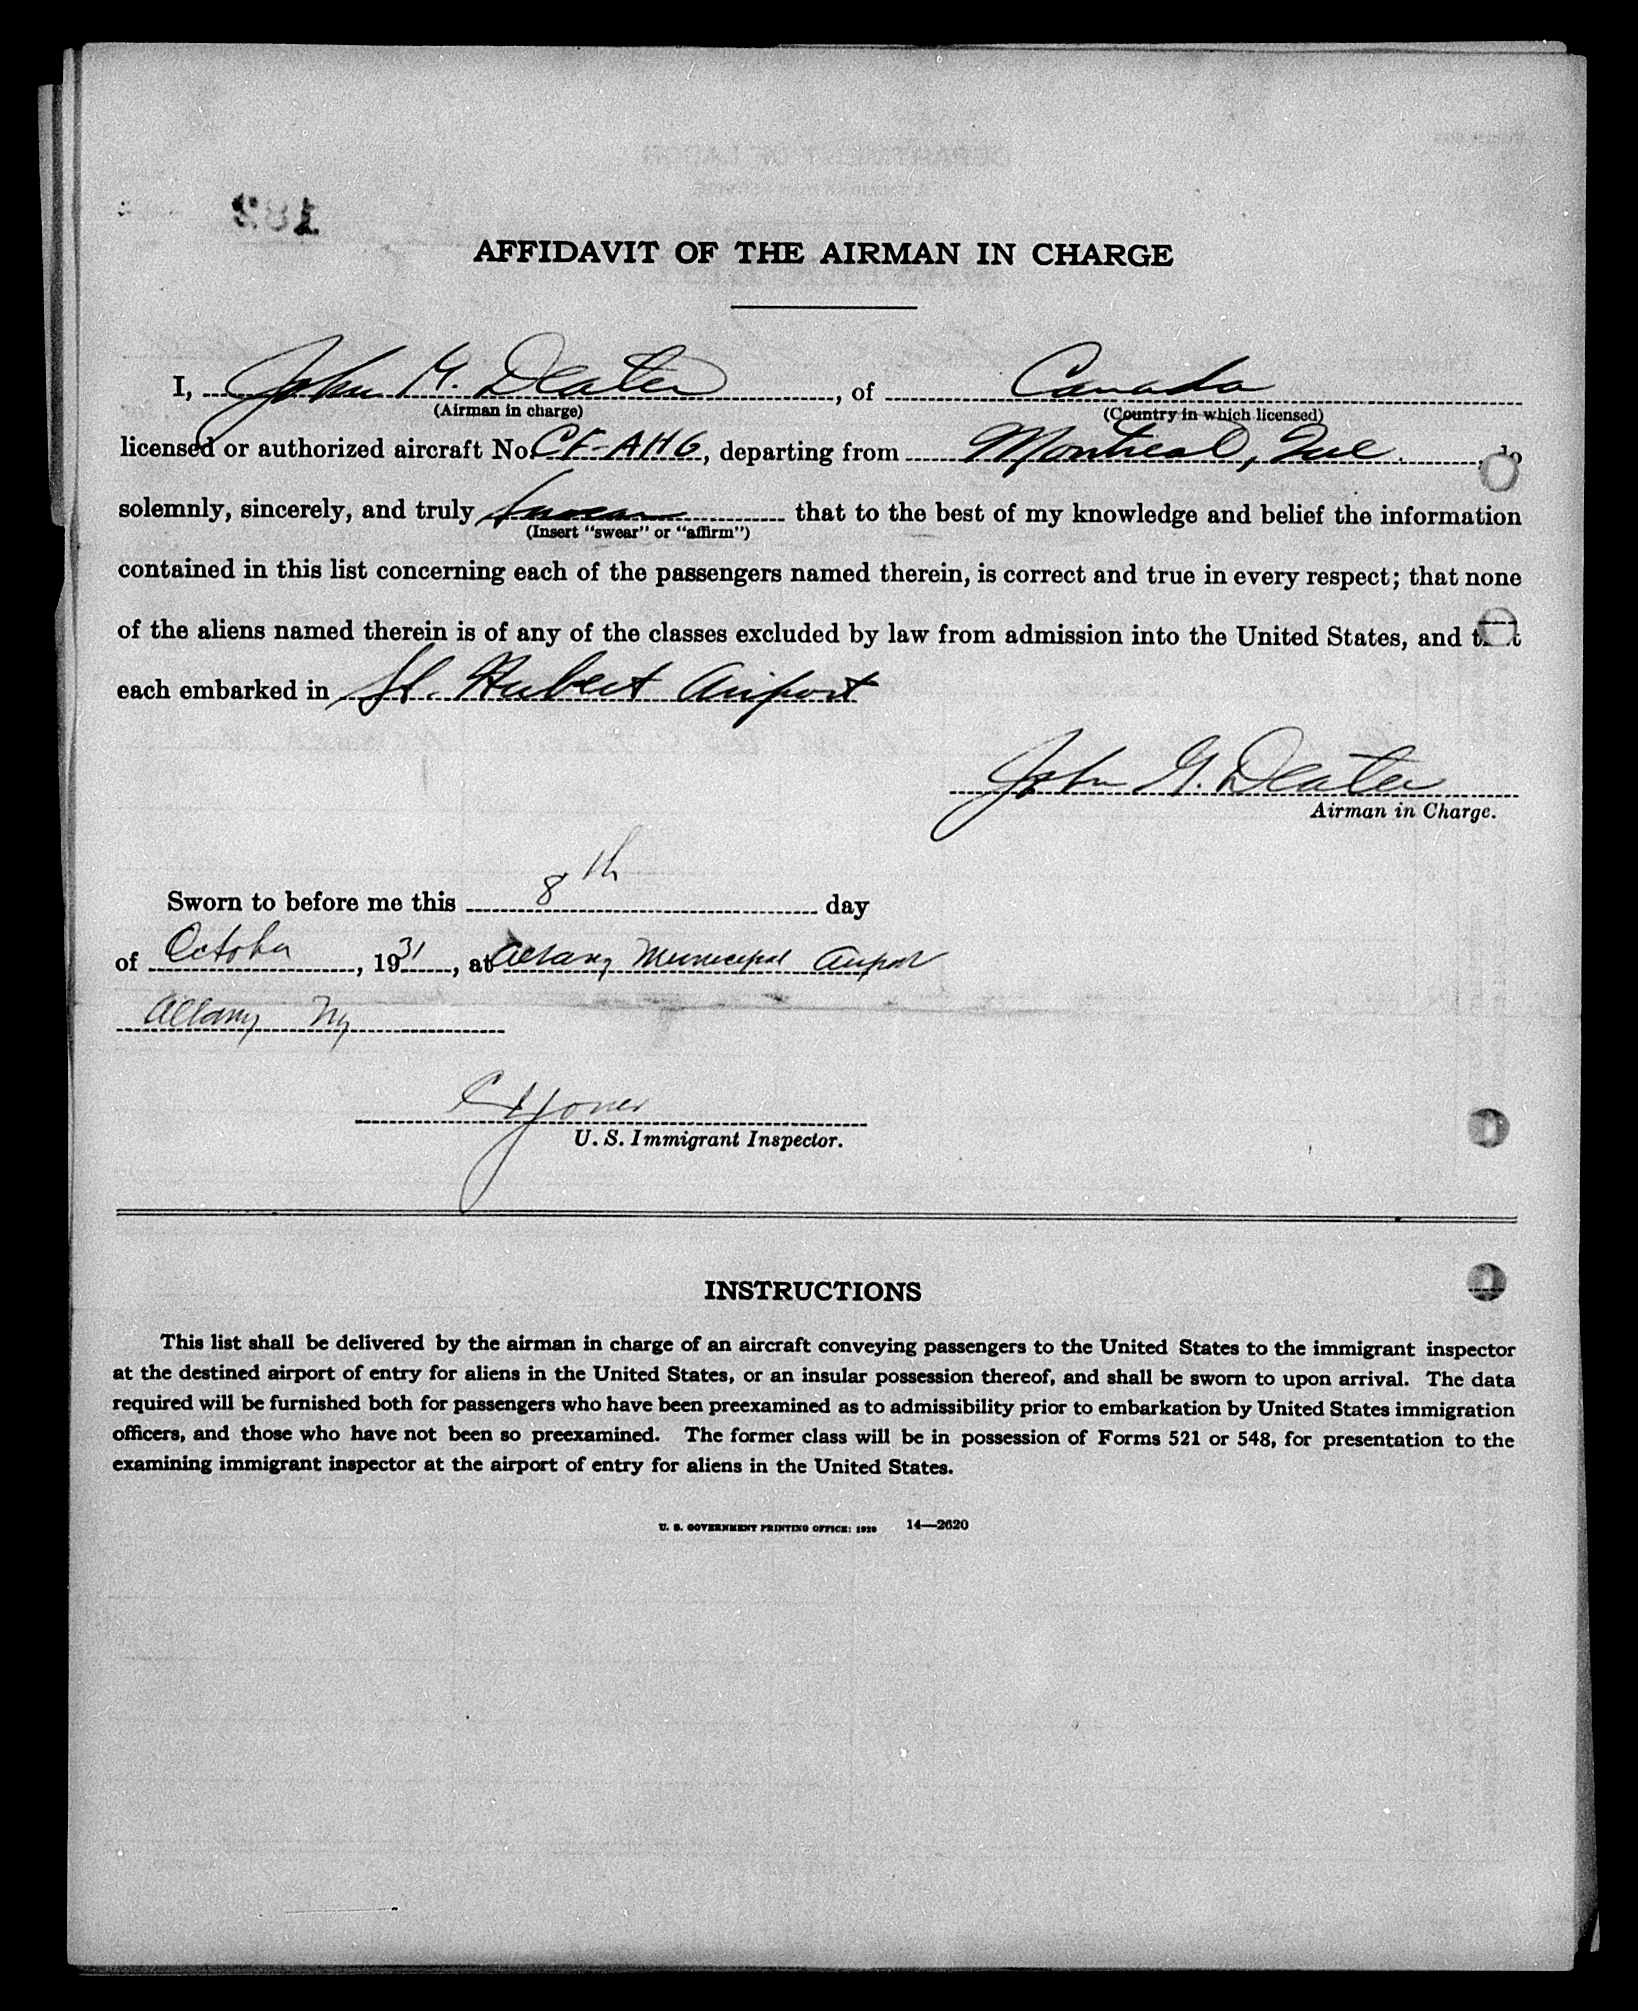 182
AFFIDAVIT OF THE AIRMAN IN CHARGE
I, John G. Deater, of Canada
(Airman in charge) (Country in which licensed)
licensed or authorized aircraft No. CF-AHG, departing from Montreal, Que., do
solemnly, sincerely, and truly swear that to the best of my knowledge and belief the information
(Insert "swear" or "affirm")
contained in this list concerning each of the passengers named therein, is correct and true in every respect; that none
of the aliens named therein is of any of the classes excluded by law from admission into the United States, and that
each embarked in St. Hubert Airport
John G. Deater
Airman in Charge.
Sworn to before me this 8th day
of October, 1931, at Albany Municipal Airport
Albany NY
Jones
U. S. Immigrant Inspector.
INSTRUCTIONS
This list shall be delivered by the airman in charge of an aircraft conveying passengers to the United States to the immigrant inspector
at the destined airport of entry for aliens in the United States, or an insular possession thereof, and shall be sworn to upon arrival. The data
required will be furnished both for passengers who have been preexamined as to admissibility prior to embarkation by United States immigration
officers, and those who have not been so preexamined. The former class will be in possession of Forms 521 or 548, for presentation to the
examining immigrant inspector at the airport of entry for aliens in the United States.
U. S. GOVERNMENT PRINTING OFFICE: 1929 14—2620